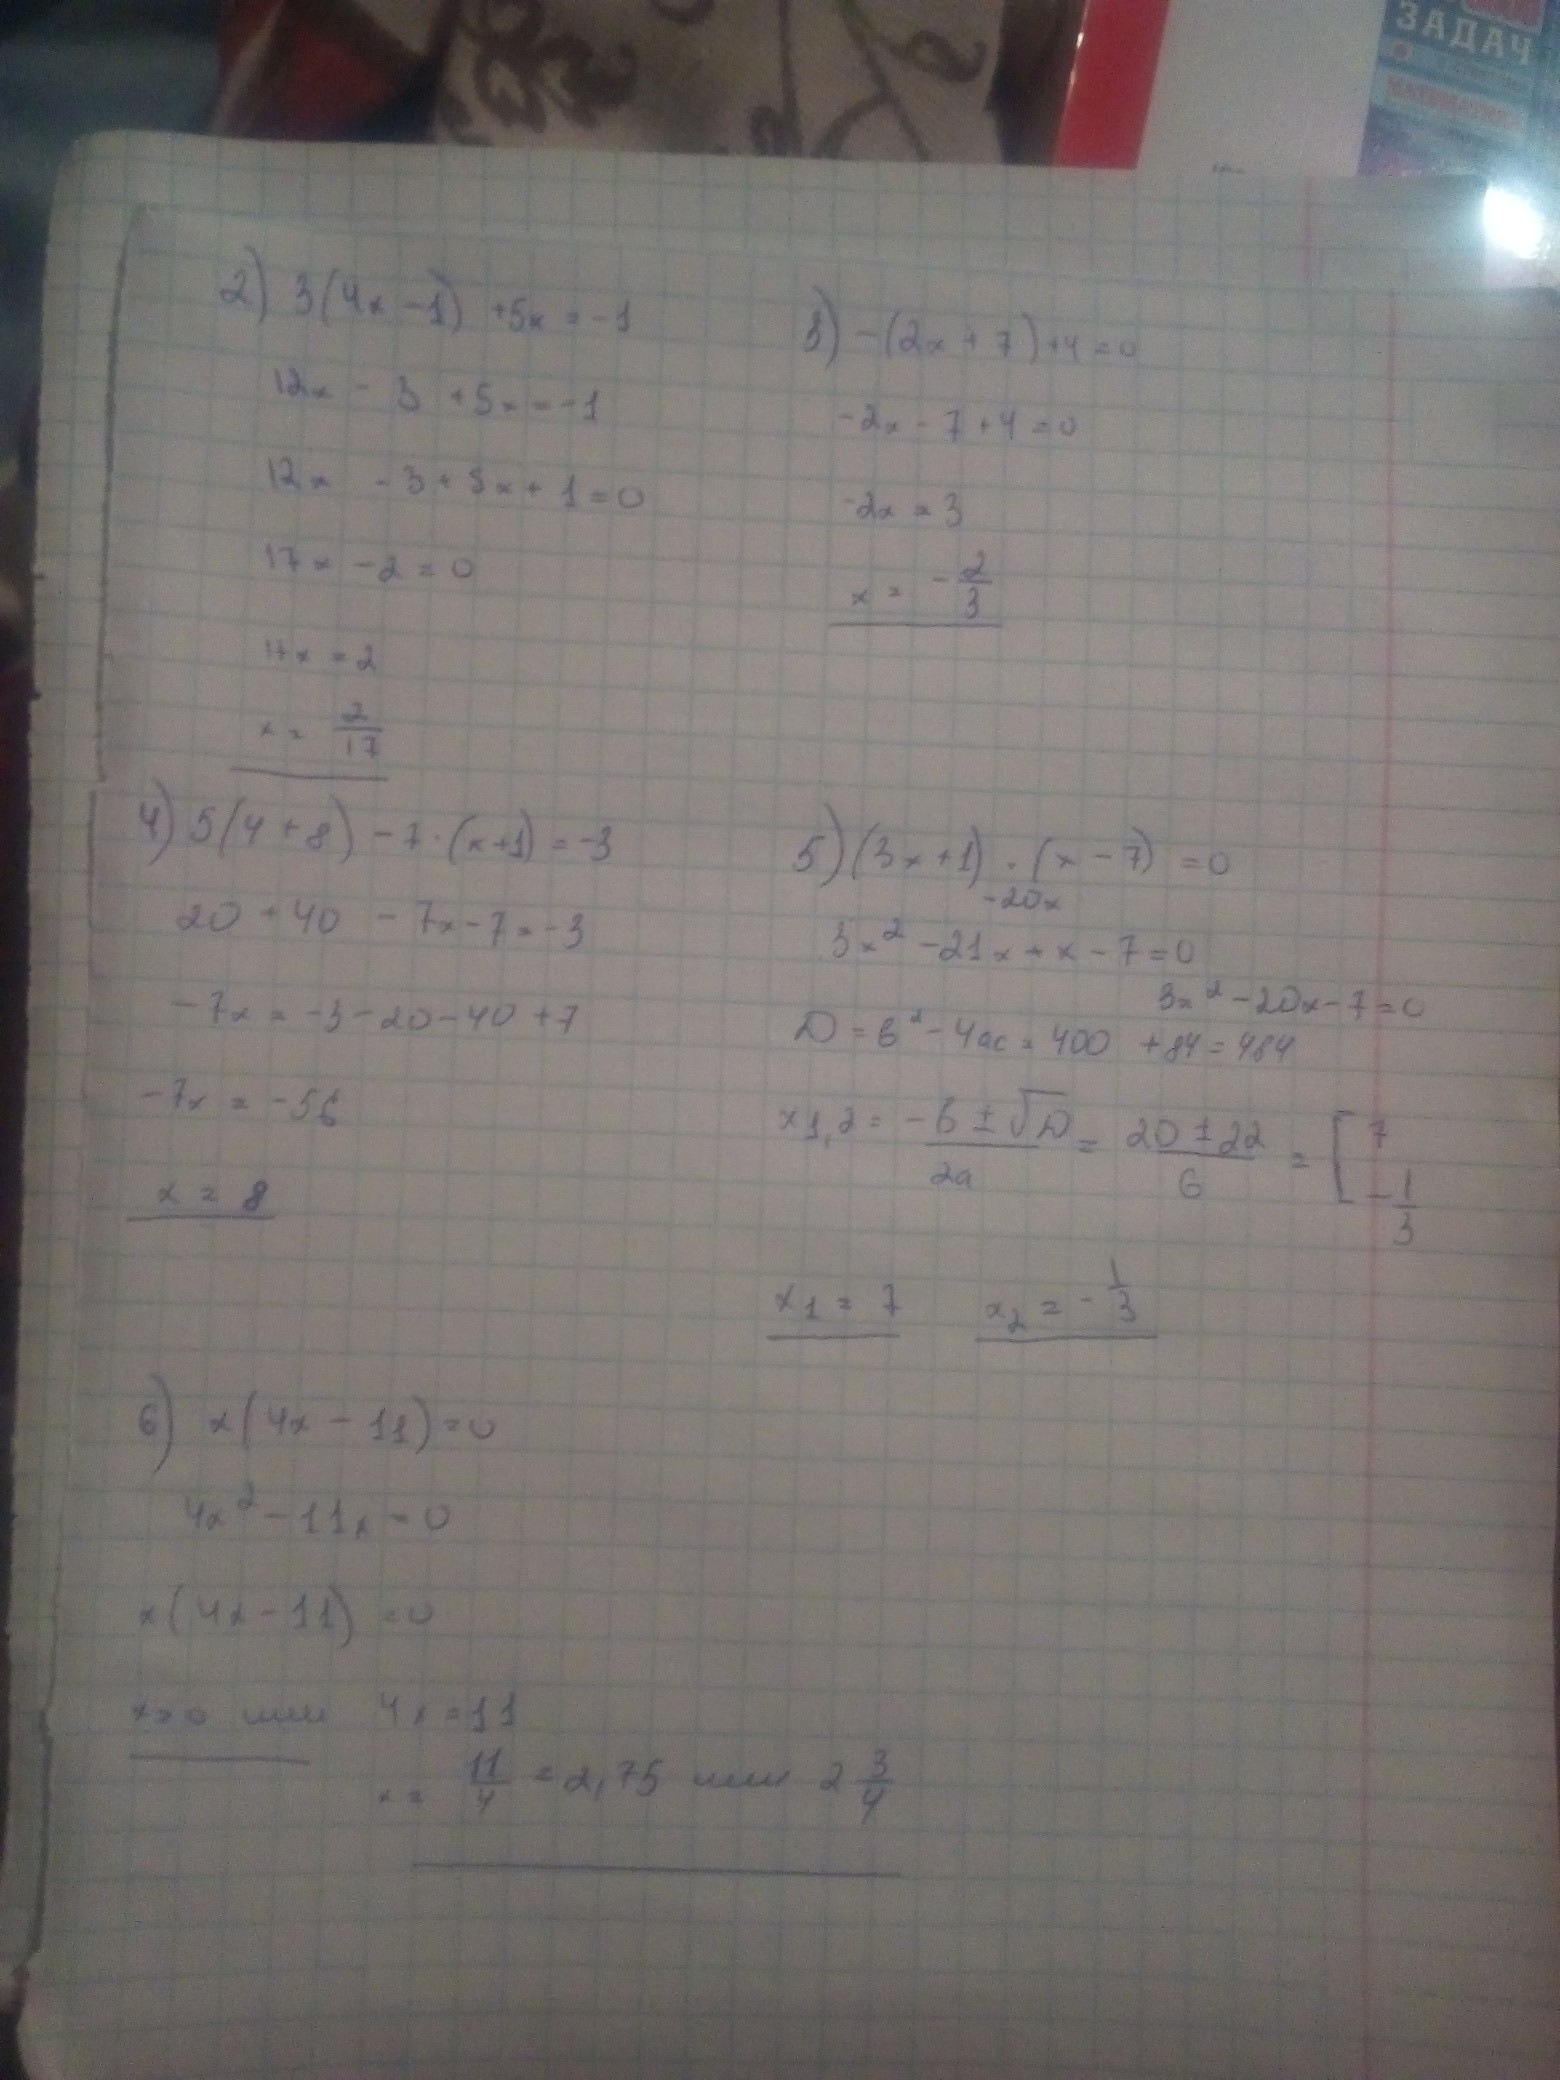 ЗАДАЧ
2) 3(4x - 1) + 5x = -1
12x - 3 + 5x = -1
12x - 3 + 5x + 1 = 0
17x - 2 = 0
17x = 2
x = 2/17
3) -(2x + 7) + 4 = 0
-2x - 7 + 4 = 0
-2x = 3
x = -2/3
4) 5(4 + 8) - 7 · (x + 1) = -3
20 + 40 - 7x - 7 = -3
-7x = -3 - 20 - 40 + 7
-7x = -56
x = 8
5) (3x + 1) · (x - 7) = 0
-20x
3x² - 21x + x - 7 = 0
3x² - 20x - 7 = 0
D = b² - 4ac = 400 + 84 = 484
x1,2 = (-b ± √D)/2a = (20 ± 22)/6 = [7 -1/3
x₁ = 7 x₂ = -1/3
6) x(4x - 11) = 0
4x² - 11x = 0
x(4x - 11) = 0
x = 0 или 4x = 11
x = 11/4 = 2,75 или 2 3/4